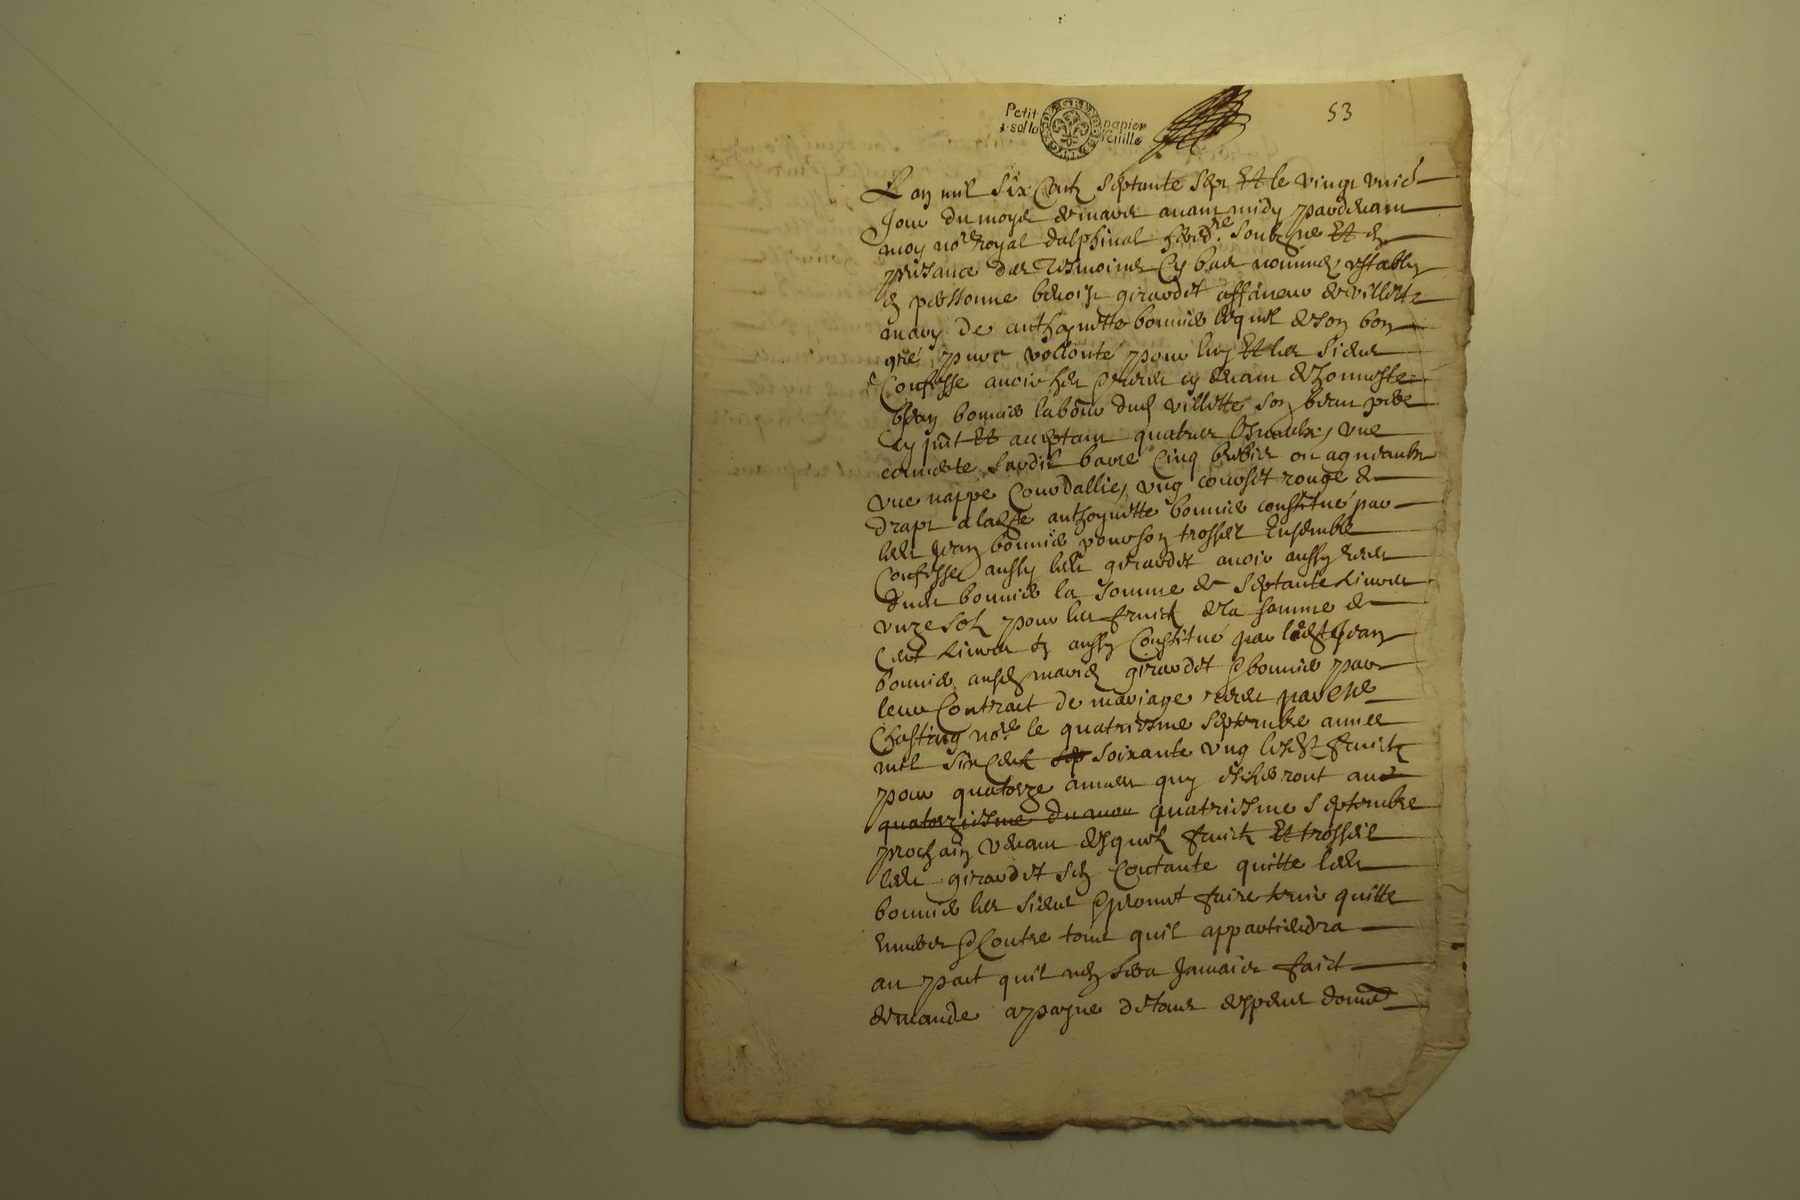 Petit papier
1 sol la feuille
53
L an mil six Centz septante sept Et le vingt
Jour du moys de mars avant midy pardevant
moy no.re royal dalphinal hered.re soub.ne Et en
presance des tesmoins Cy bas nommes estably
en personne benoist girardet affaneur de villette
mary de anthoynette bonnied lequel de son bon
gré pure vollonté pour luy Et les siens
Confesse avoir heu cy devant de honneste
Jean bonnied labour dud villette son beau pere
Cy pnt Et acceptant quatre une
couverte sardis barre Cinq brebies ou agneaulx
une nappe Courdallie, ung corset rouge de
drapt a lad anthoynette bonnied constitué par
led Jean bonnied pour son trossel Ensemble
Confesse aussy led girardet avoir aussy receu
dud bonnied la somme de septante livres
unze solz pour les fruictz de la somme de
Cent livres tz aussy Constitué par led Jean
bonnied ausd mariez girardet & bonnied par
leur Contract de mariage receu par Me
Chasting no.re le quatriesme septembre annee
mil six Centz sep soixante ung lesd fruictz
pour quatorze annees quy escherront au
quatorziesme du mou quatriesme septembre
prochain venant desquelz fruictz Et trosseil
led girardet se Contante quitte led
bonnied les siens & promet faire tenir quitte
envers & Contre tous quil appartiendra
au pact quil nen sera Jamais faict
demande a payne de tous despens domma